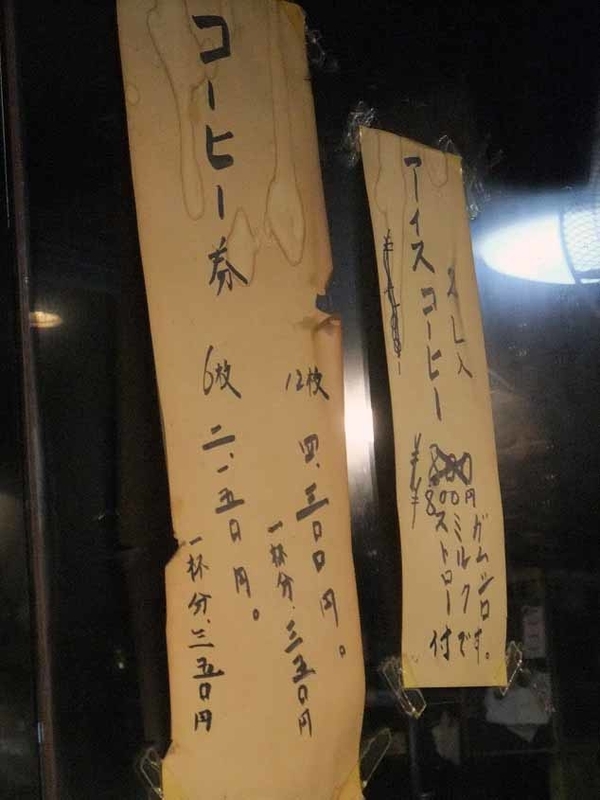 コーヒー券
12枚 四、三〇〇円。
一杯分、三五〇円
6枚 二、一五〇円。
一杯分、三五〇円
2L入
アイスコーヒー
800円
ガムシロ
ミルク
ストロー付
です。